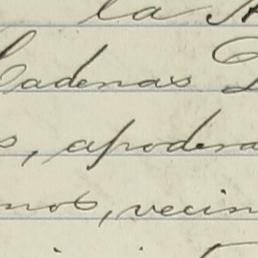 la
Cadenas
s, apodera
nos, vecin